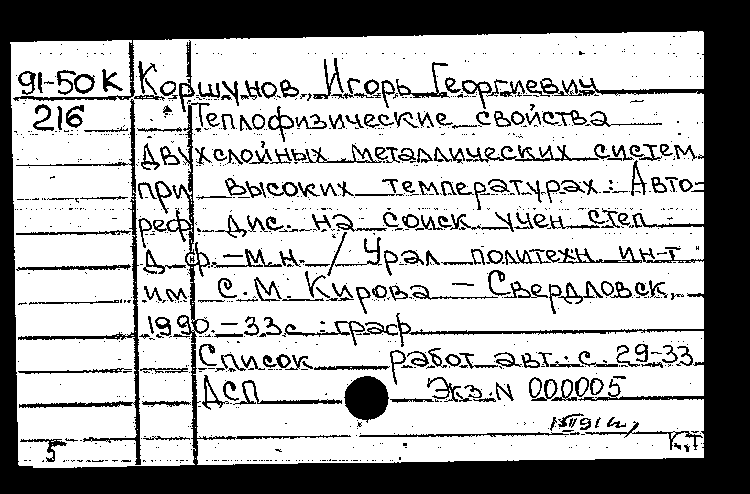 91-50К Коршунов, Игорь Георгиевич
216 Теплофизические свойства
двухслойных металлических систем
при высоких температурах: Авто-
реф. дис. на соиск. учен. степ.
д. ф.-м.н. / Урал. политехн. ин-т
им. С.М. Кирова. - Свердловск,
1990. - 33с. : граф.
Список работ авт.: с. 29-33
ДСП Экз. N 000005
5 К.,Т